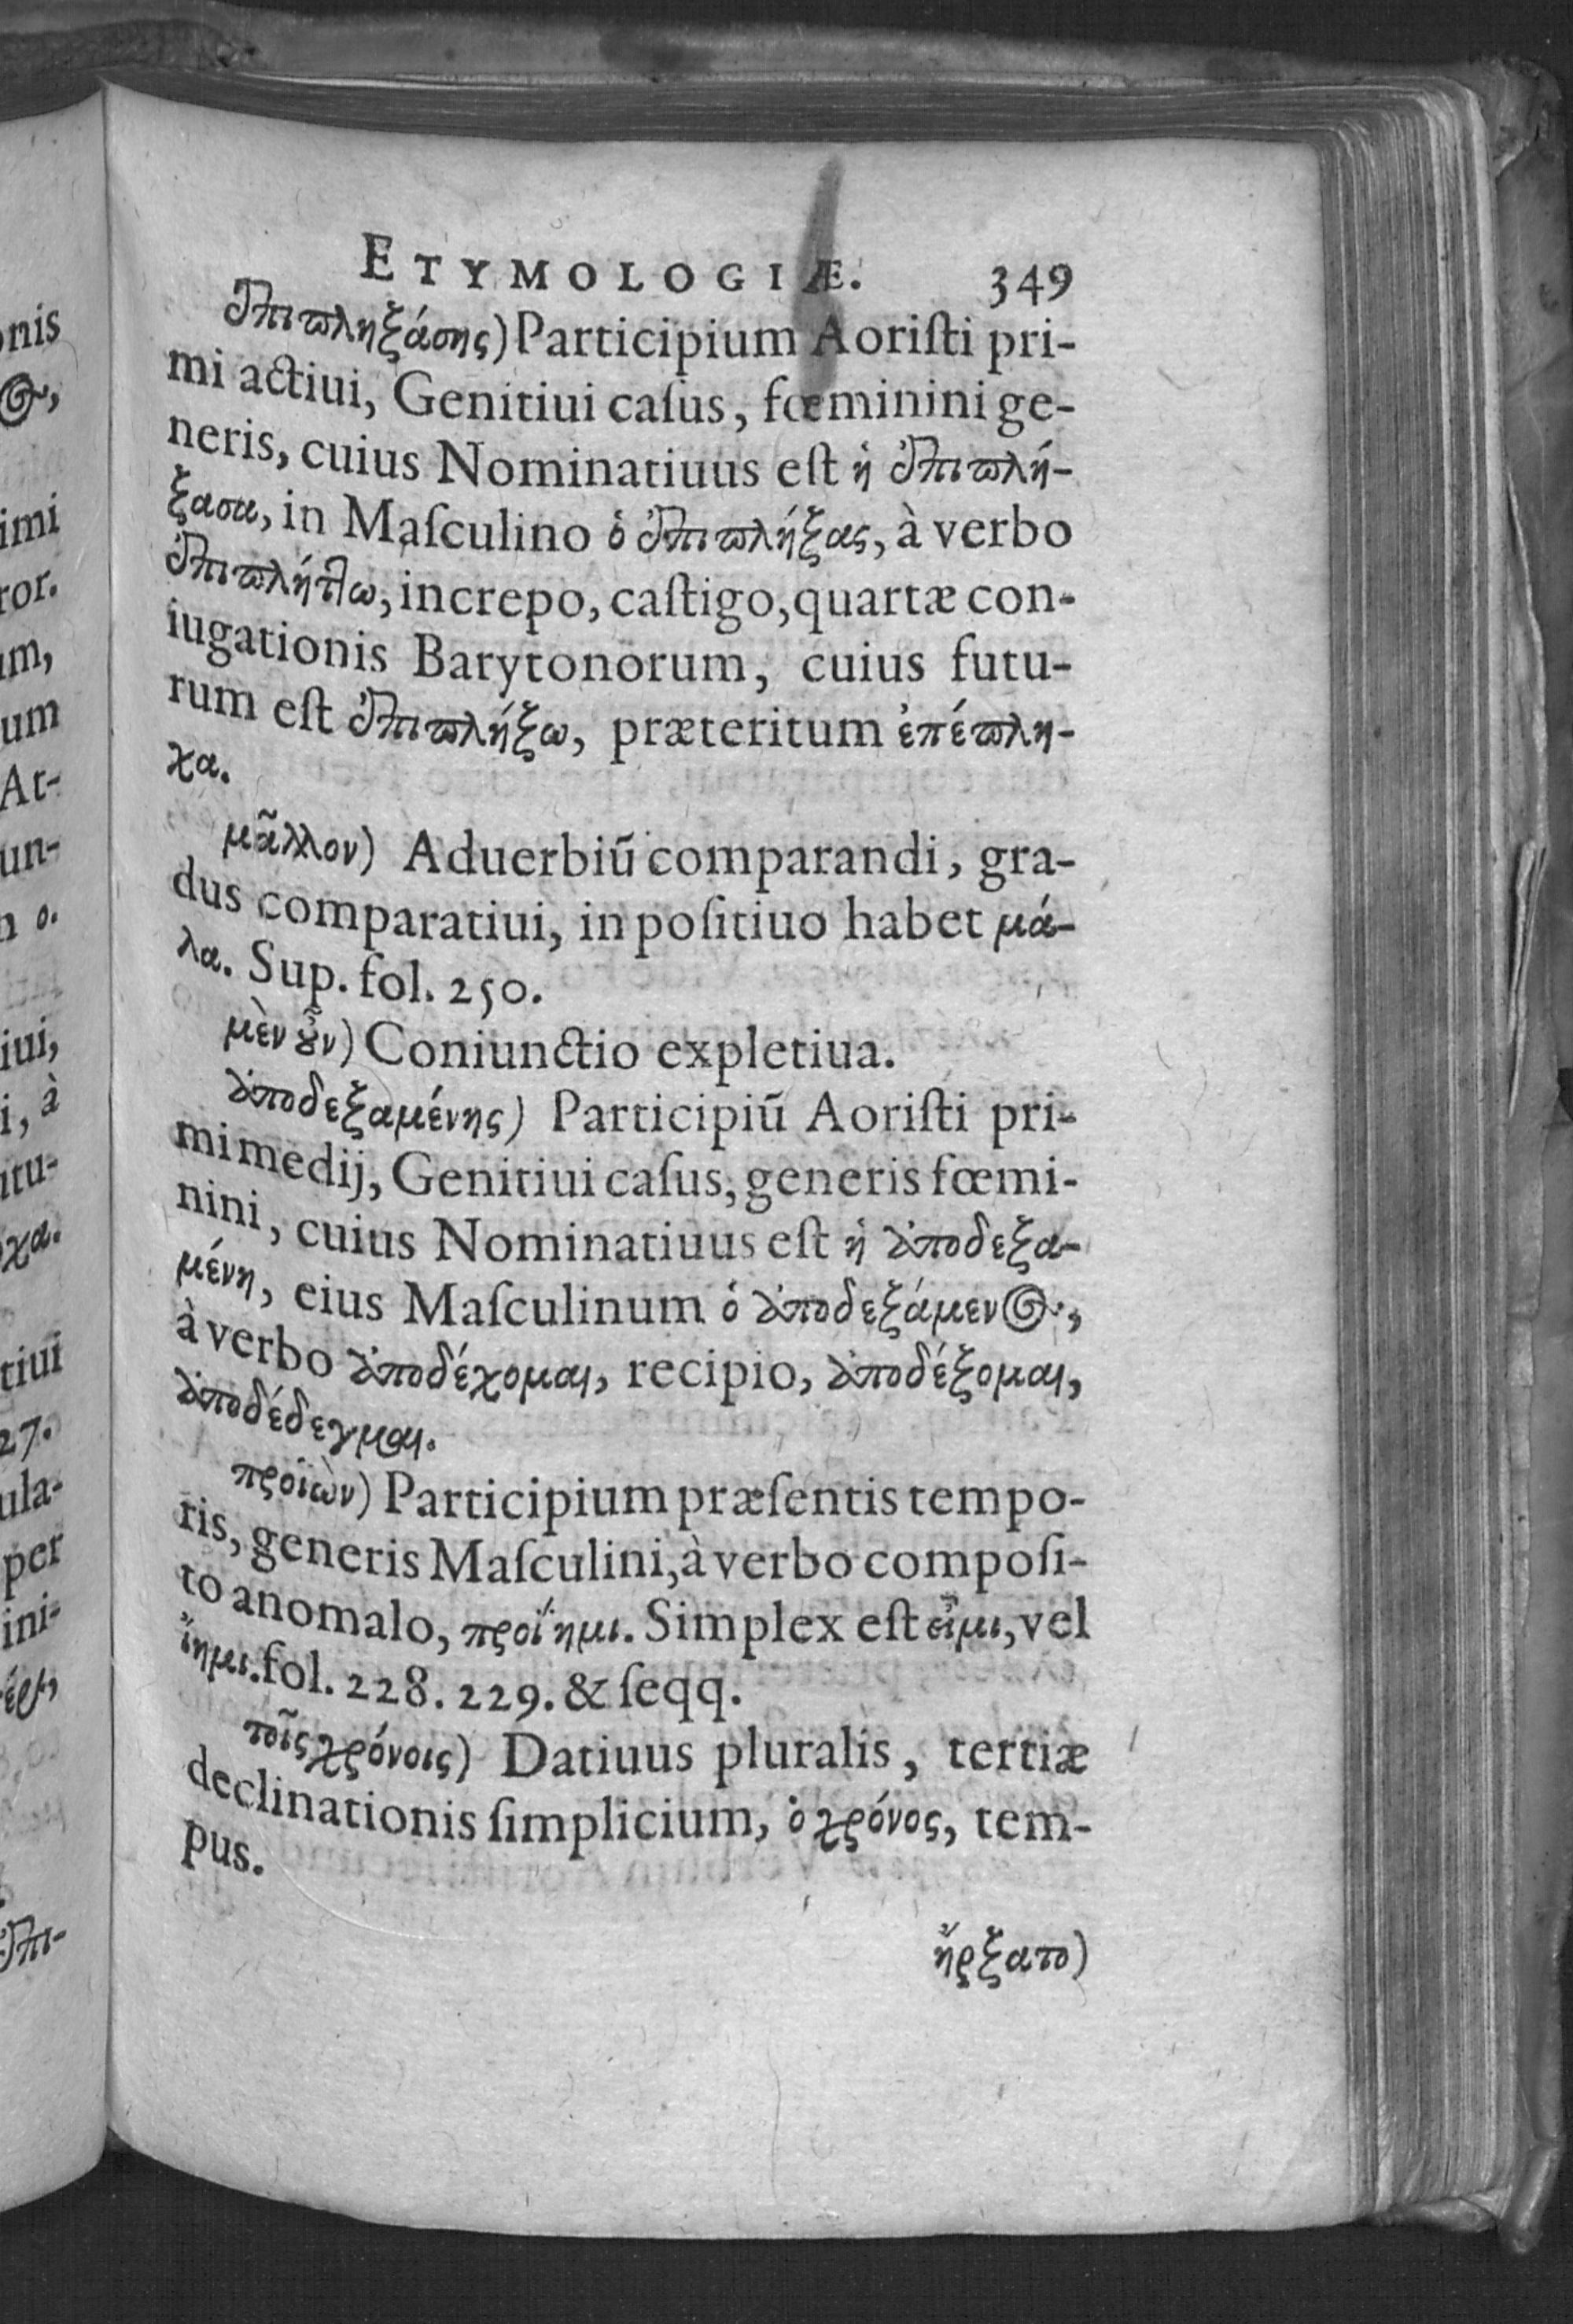 ETYMOLOGIÆ. 349
ἐπιπληξάσης) Participium Aoriſti pri-
mi actiui, Genitiui caſus, fœminini ge-
neris, cuius Nominatiuus eſt ἡ ἐπιπλή-
ξασα, in Maſculino ὁ ἐπιπλήξας, à verbo
ἐπιπλήττω, increpo, caſtigo, quartæ con-
iugationis Barytonorum, cuius futu-
rum eſt ἐπιπλήξω, præteritum ἐπέπλη-
χα.
μᾶλλον) Aduerbiũ comparandi, gra-
dus comparatiui, in poſitiuo habet μά-
λα. Sup. fol. 250.
μὲν ȣ̓͂ν) Coniunctio expletiua.
ἀποδεξαμένης) Participiũ Aoriſti pri-
mi medij, Genitiui caſus, generis fœmi-
nini, cuius Nominatiuus eſt ἡ ἀποδεξα-
μένη, eius Maſculinum ὁ ἀποδεξάμενος,
à verbo ἀποδέχομαι, recipio, ἀποδέξομαι,
ἀποδέδεγμαι.
προϊὼν) Participium præſentis tempo-
ris, generis Maſculini, à verbo compoſi-
to anomalo, προΐημι. Simplex eſt εἶμι, vel
ἵημι. fol. 228. 229. & ſeqq.
τοῖς χρόνοις) Datiuus pluralis, tertiæ
declinationis ſimplicium, ὁ χρόνος, tem-
pus.
ἤρξατο)